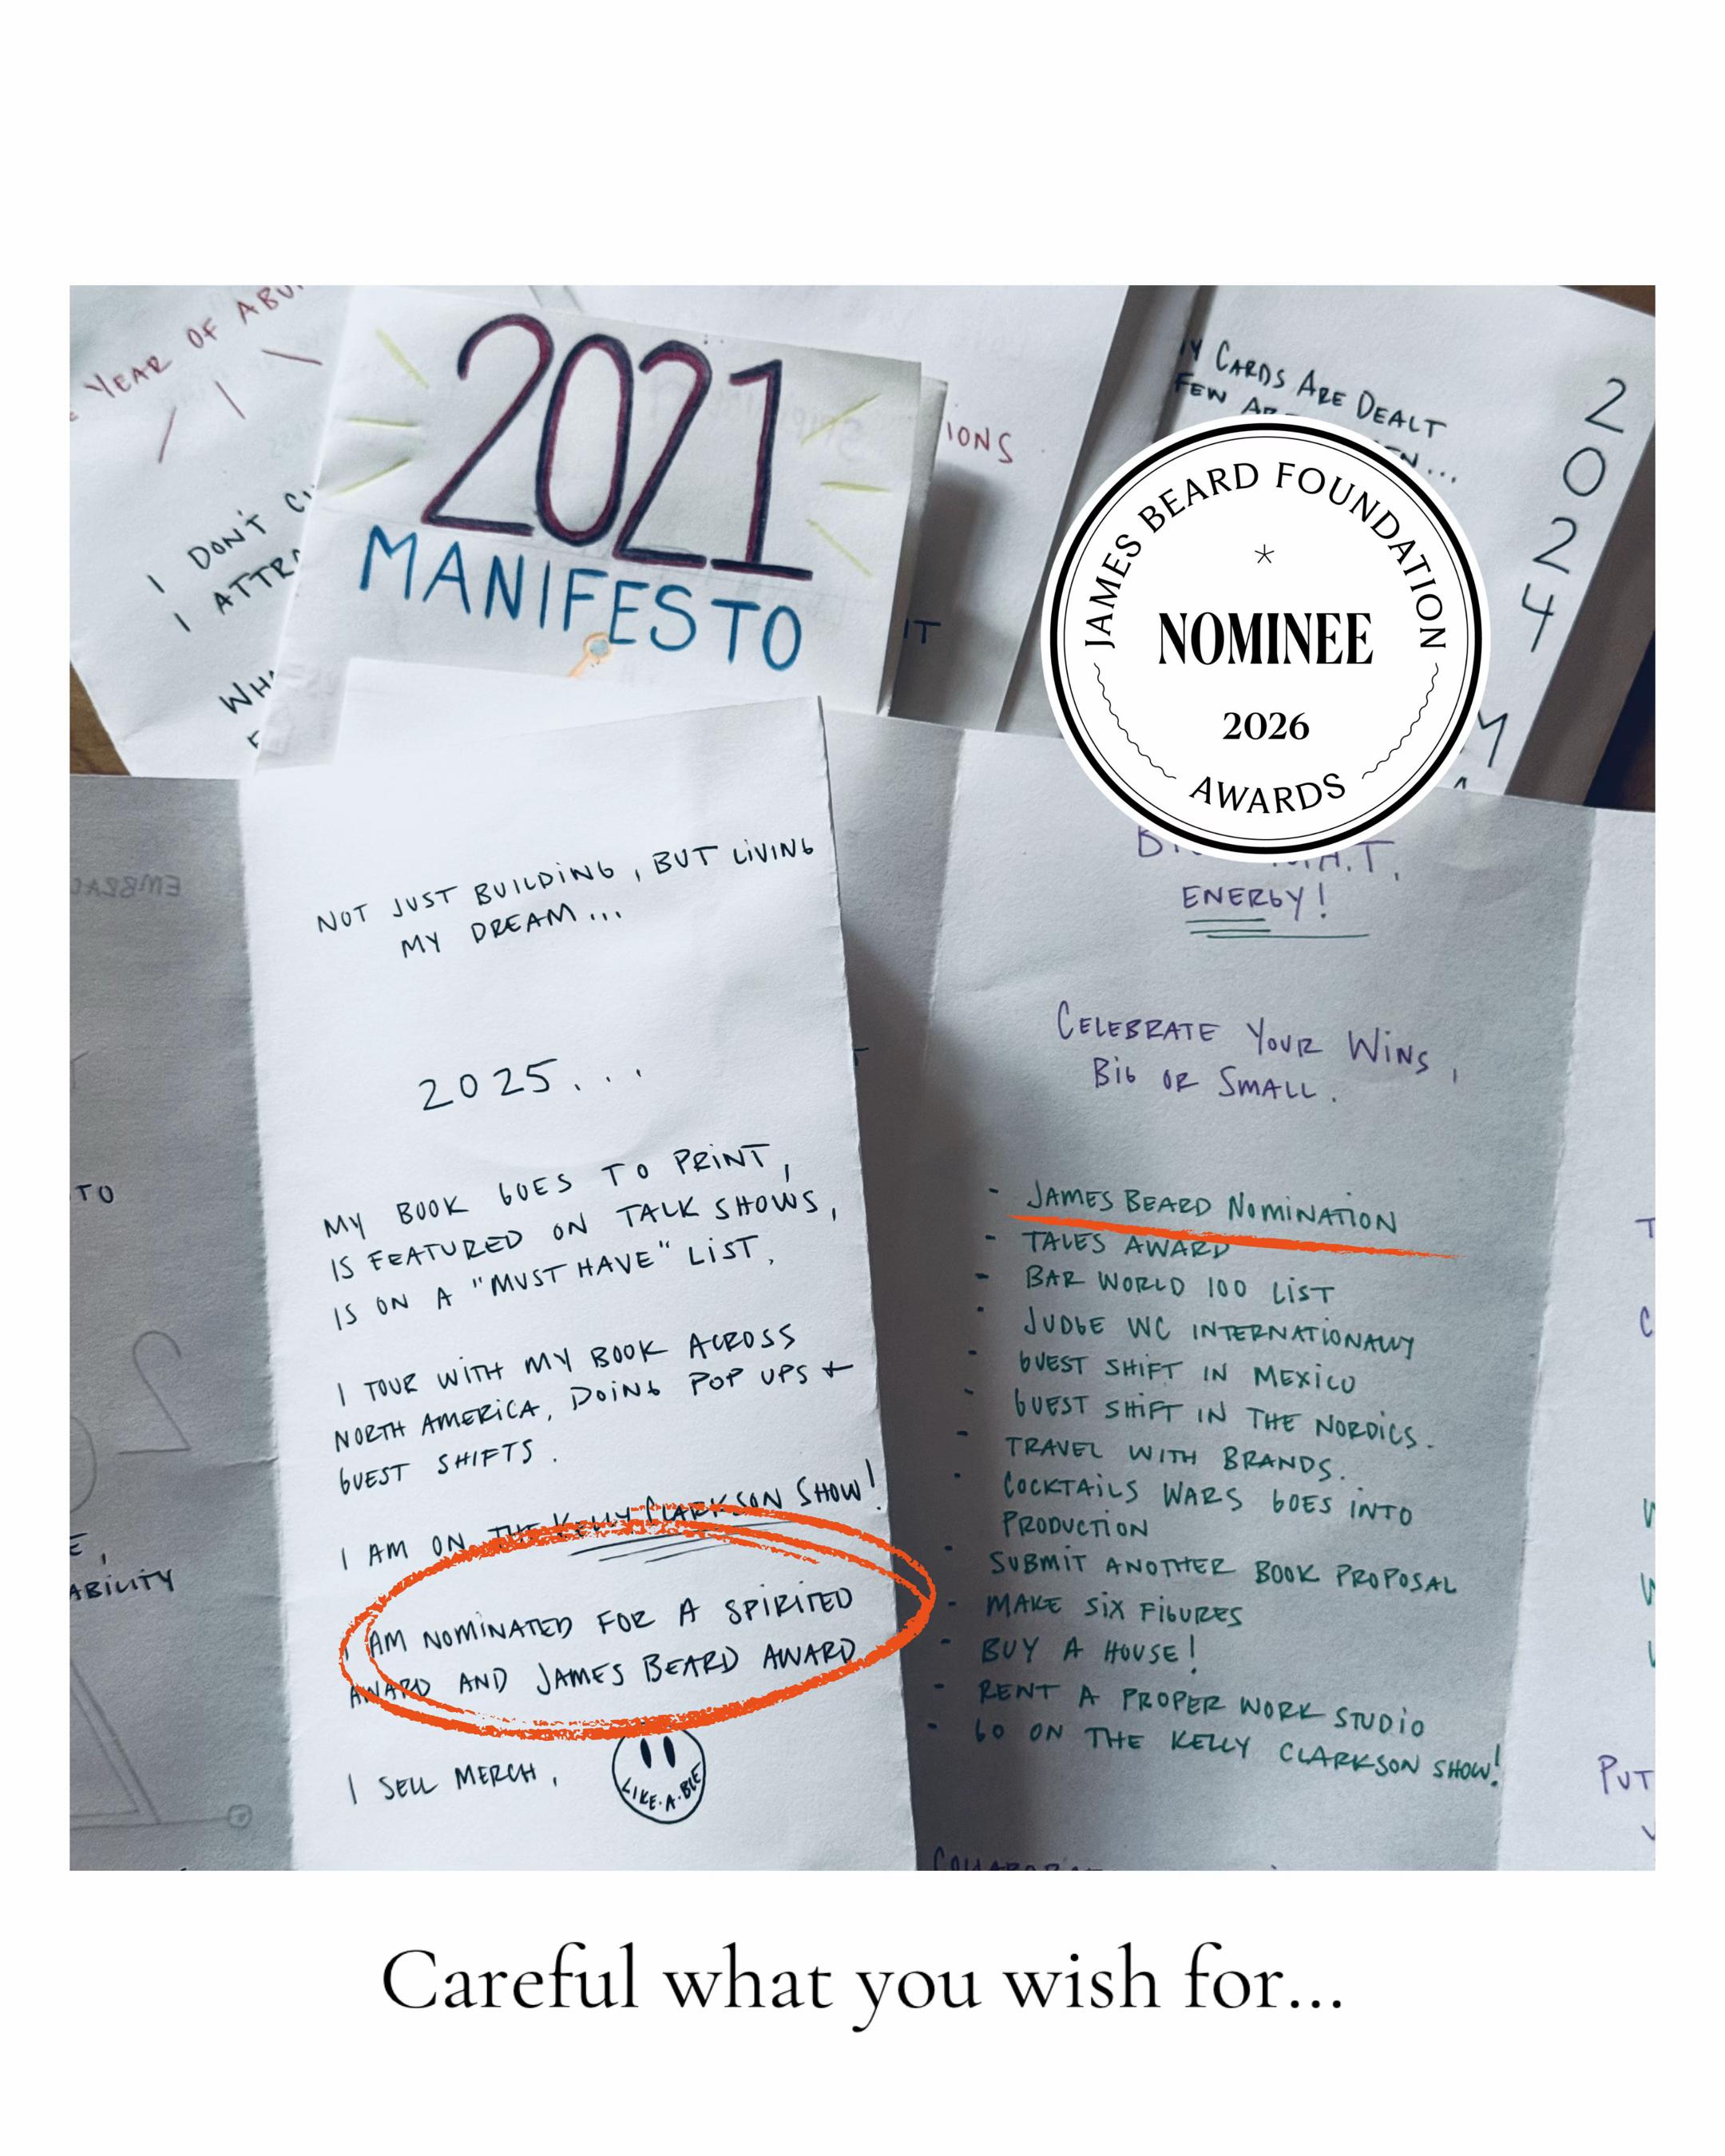 YEAR OF
2021
MANIFESTO
I DON'T
I
IONS
IT
CARDS ARE DEALT
FEW
2
0
2
4
JAMES BEARD FOUNDATION
NOMINEE
2026
AWARDS
NOT JUST BUILDING, BUT LIVING
MY DREAM...
2025...
MY BOOK GOES TO PRINT,
IS FEATURED ON TALK SHOWS,
IS ON A "MUST HAVE" LIST.
I TOUR WITH MY BOOK ACROSS
NORTH AMERICA, DOING POP UPS +
GUEST SHIFTS.
I AM ON THE KELLY CLARKSON SHOW!
I AM NOMINATED FOR A SPIRITED
AWARD AND JAMES BEARD AWARD
I SELL MERCH,
LIKE·A·BLE
ENERGY!
CELEBRATE YOUR WINS,
BIG OR SMALL.
- JAMES BEARD NOMINATION
- TALES AWARD
- BAR WORLD 100 LIST
- JUDGE WC INTERNATIONALLY
- GUEST SHIFT IN MEXICO
- GUEST SHIFT IN THE NORDICS.
- TRAVEL WITH BRANDS.
- COCKTAILS WARS GOES INTO
PRODUCTION
- SUBMIT ANOTHER BOOK PROPOSAL
- MAKE SIX FIGURES
- BUY A HOUSE!
- RENT A PROPER WORK STUDIO
- GO ON THE KELLY CLARKSON SHOW!
TO
ABILITY
PUT
Careful what you wish for...